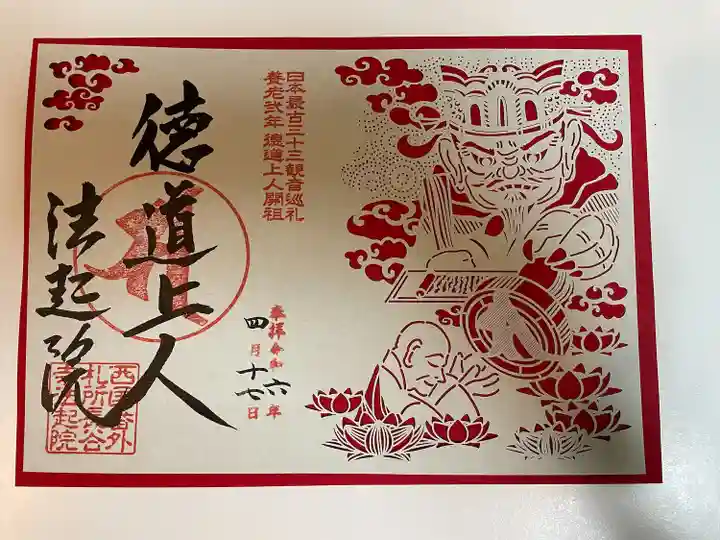 日本最古三十三観音巡礼
養老弐年 徳道上人開祖
奉拝 令和六年
四月十七日
徳道上人
法起院
西国番外
札所長谷
寺法起院